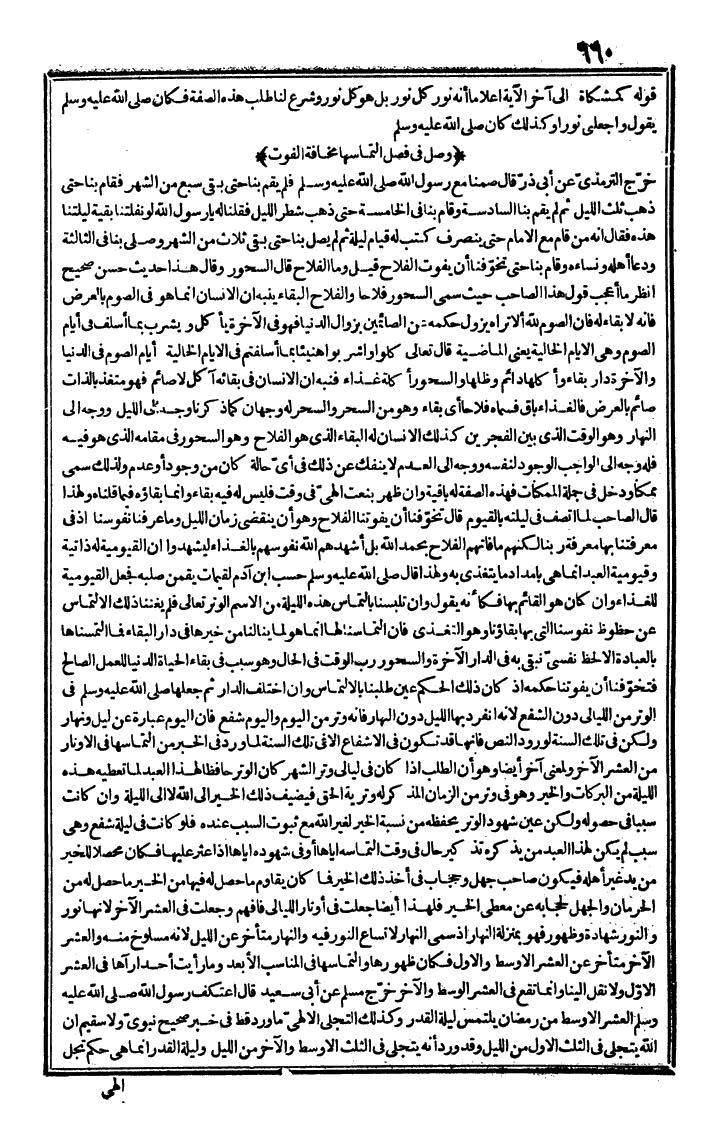 ٦٦٠
قوله كمشكاة الى آخر الآية اعلاما أنه نور كل نور بل هو كل نور وشرع لنا طلب هذه الصفة فكان صلى الله عليه وسلم
يقول واجعلنى نورا وكذلك كان صلى الله عليه وسلم
﴿وصل فى فصل التماسها مخافة الفوت﴾
خرّج الترمذىّ عن أبى ذرّ قال صمنا مع رسول الله صلى الله عليه وسلم فلم يقم بنا حتى بقى سبع من الشهر فقام بنا حتى
ذهب ثلث الليل ثم لم يقم بنا السادسة وقام بنا فى الخامسة حتى ذهب شطر الليل فقلنا له يا رسول الله لو نفلتنا بقية ليلتنا
هذه فقال انه من قام مع الامام حتى ينصرف كتب له قيام ليلة ثم لم يصل بنا حتى بقى ثلاث من الشهر وصلى بنا فى الثالثة
ودعا أهله ونساءه وقام بنا حتى تخوّفنا أن يفوت الفلاح قيل وما الفلاح قال السحور وقال هذا حديث حسن صحيح
انظر ما أعجب قول هذا الصاحب حيث سمى السحور فلاحا والفلاح البقاء ينبه ان الانسان انما هو فى الصوم بالعرض
فانه لا بقاء له فان الصوم لله ألا تراه يزول حكمه عن الصائمين بزوال الدنيا فهو فى الآخرة يأكل ويشرب بما أسلف فى أيام
الصوم وهى الايام الخالية يعنى الماضية قال تعالى كلوا واشربوا هنيئا بما أسلفتم فى الايام الخالية أيام الصوم فى الدنيا
والآخرة دار بقاء وأكلها دائم وظلها والسحور أكلة غذاء فنبه ان الانسان فى بقائه آكل لا صائم فهو متغذ بالذات
صائم بالعرض فالغذاء باق فسماه فلاحا أى بقاء وهو من السحر والسحر له وجهان كما ذكرنا وجه الى الليل ووجه الى
النهار وهو الوقت الذى بين الفجرين كذلك الانسان له البقاء الذى هو الفلاح وهو السحور فى مقامه الذى هو فيه
فله وجه الى الواجب الوجود لنفسه ووجه الى العدم لا ينفك عن ذلك فى أىّ حالة كان من وجود أو عدم ولذلك سمى
ممكنا ودخل فى جملة الممكنات فهذه الصفة له باقية وان ظهر بنعت الهىّ فى وقت فليس له فيه بقاء وانما بقاؤه فيما قلناه ولهذا
قال الصاحب لما اتصف فى ليلته بالقيوم قال تخوّفنا أن يفوتنا الفلاح وهو أن ينقضى زمان الليل وما عرفنا نفوسنا اذ فى
معرفتنا بها معرفة ربنا لكنهم ما فاتهم الفلاح بحمد الله بل أشهدهم الله نفوسهم بالغذاء ليشهدوا ان القيومية له ذاتية
وقيومية العبد انما هى بامداد ما يتغذى به ولهذا قال صلى الله عليه وسلم حسب ابن آدم لقيمات يقمن صلبه فجعل القيومية
للغذاء وان كان هو القائم بها فكأنه يقول وان تلبسنا بالتماس هذه الليلة من الاسم الوتر تعالى فلم يغننا ذلك الالتماس
عن حظوظ نفوسنا التى بها بقاؤنا وهو التغذى فان التماسنا لها انما هو لما ينالنا من خيرها فى دار البقاء فما التمسناها
بالعبادة الا لحظ نفسىّ تبقى به فى الدار الآخرة والسحور رب الوقت فى الحال وهو سبب فى بقاء الحياة الدنيا للعمل الصالح
فتخوّفنا أن يفوتنا حكمه اذ كان ذلك الحكم عين طلبنا بالالتماس وان اختلف الدار ثم جعلها صلى الله عليه وسلم فى
الوتر من الليالى دون الشفع لانه انفرد بها الليل دون النهار فانه وتر من اليوم واليوم شفع فان اليوم عبارة عن ليل ونهار
ولكن فى تلك السنة لورود النص فانها قد تكون فى الاشفاع الا فى تلك السنة لما ورد فى الخبر من التماسها فى الاوتار
من العشر الآخر ولمعنى آخر أيضا وهو أن الطلب اذا كان فى ليالى وتر الشهر كان الوتر حافظا لهذا العبد لما تعطيه هذه
الليلة من البركات والخير وهو فى وتر من الزمان المذكر له وترية الحق فيضيف ذلك الخير الى الله لا الى الليلة وان كانت
سببا فى حصوله ولكن عين شهود الوتر يحفظه من نسبة الخير لغير الله مع ثبوت السبب عنده فلو كانت فى ليلة شفع وهى
سبب لم يكن لهذا العبد من يذكره تذكير حال فى وقت التماسه اياها أو فى شهوده اياها اذا عثر عليها فكان محصلا للخير
من يد غير أهله فيكون صاحب جهل وحجاب فى أخذ ذلك الخير فما كان يقاوم ما حصل له فيها من الخير ما حصل له من
الحرمان والجهل لحجابه عن معطى الخير فلهذا أيضا جعلت فى أوتار الليالى فافهم وجعلت فى العشر الآخر لانها نور
والنور شهادة وظهور فهو بمنزلة النهار اذ سمى النهار لاتساع النور فيه والنهار متأخر عن الليل لانه مسلوخ منه والعشر
الآخر متأخر عن العشر الاوسط والاول فكان ظهورها والتماسها فى المناسب الأبعد وما رأيت أحدا رآها فى العشر
الاوّل ولا نقل الينا وانما تقع فى العشر الوسط والآخر خرّج مسلم عن أبى سعيد قال اعتكف رسول الله صلى الله عليه
وسلم العشر الاوسط من رمضان يلتمس ليلة القدر وكذلك التجلى الالهىّ ما ورد قط فى خبر صحيح نبوىّ ولا سقيم ان
الله يتجلى فى الثلث الاول من الليل وقد ورد أنه يتجلى فى الثلث الاوسط والآخر من الليل وليلة القدر انما هى حكم تجل
الهى